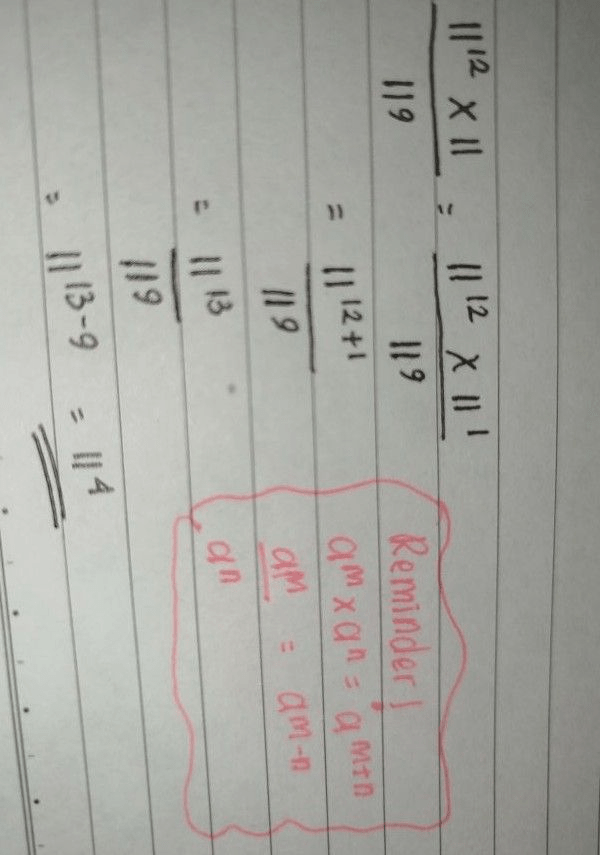 11¹² × 11 / 11⁹ = 11¹² × 11¹ / 11⁹
= 11¹²⁺¹ / 11⁹
= 11¹³ / 11⁹
= 11¹³⁻⁹ = 11⁴
Reminder!
aᵐ × aⁿ = aᵐ⁺ⁿ
aᵐ / aⁿ = aᵐ⁻ⁿ